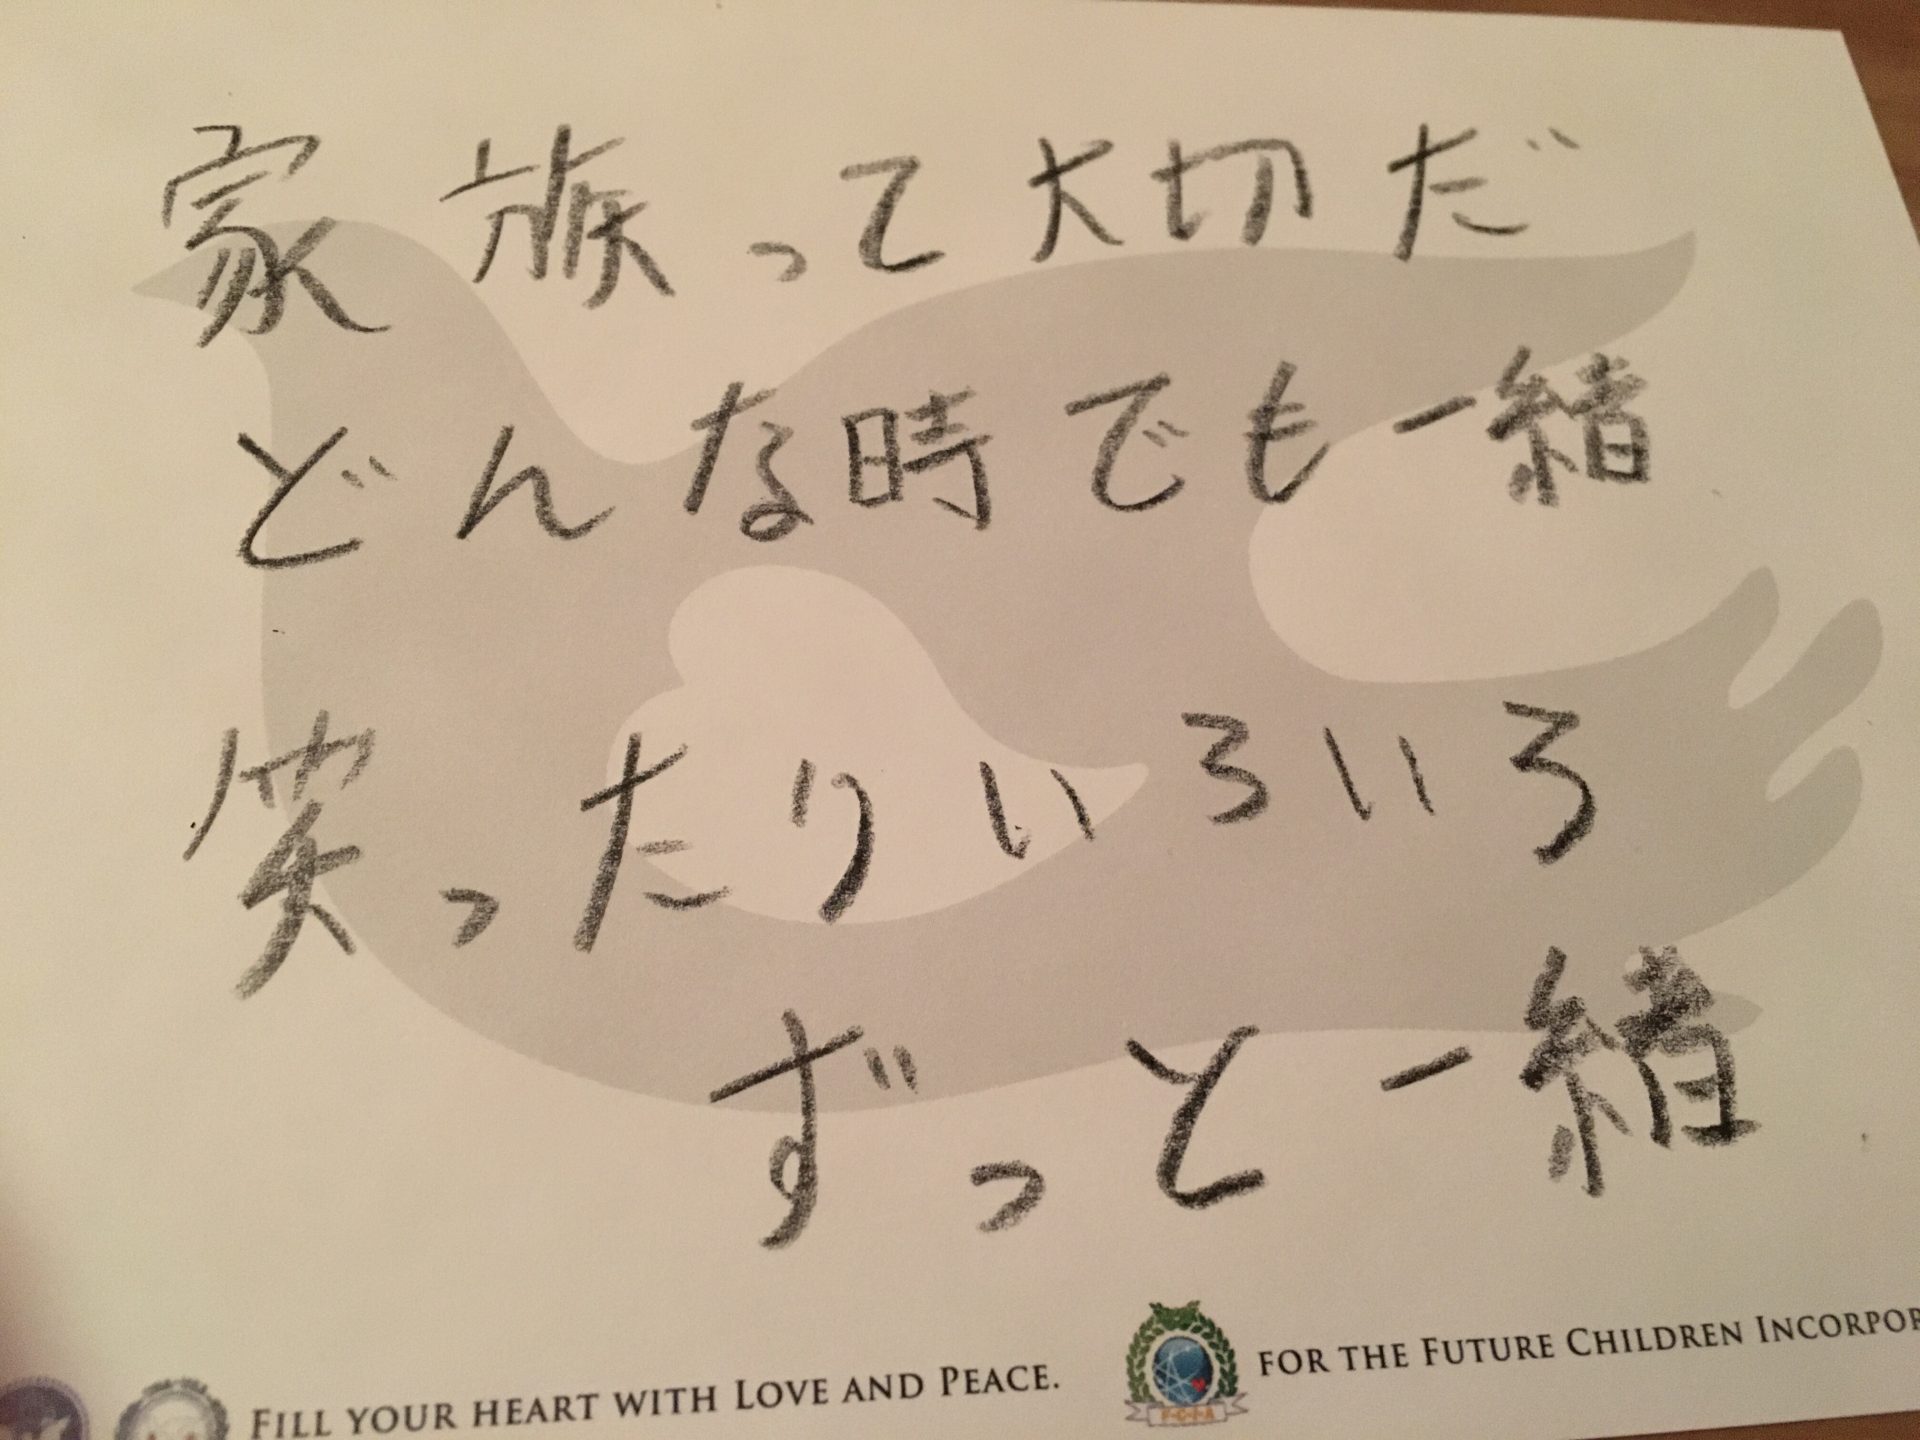 家族って大切だ
どんな時でも一緒
笑ったりいろいろ
ずっと一緒
FILL YOUR HEART WITH LOVE AND PEACE.
FOR THE FUTURE CHILDREN INCORPOR
F·C·I·A